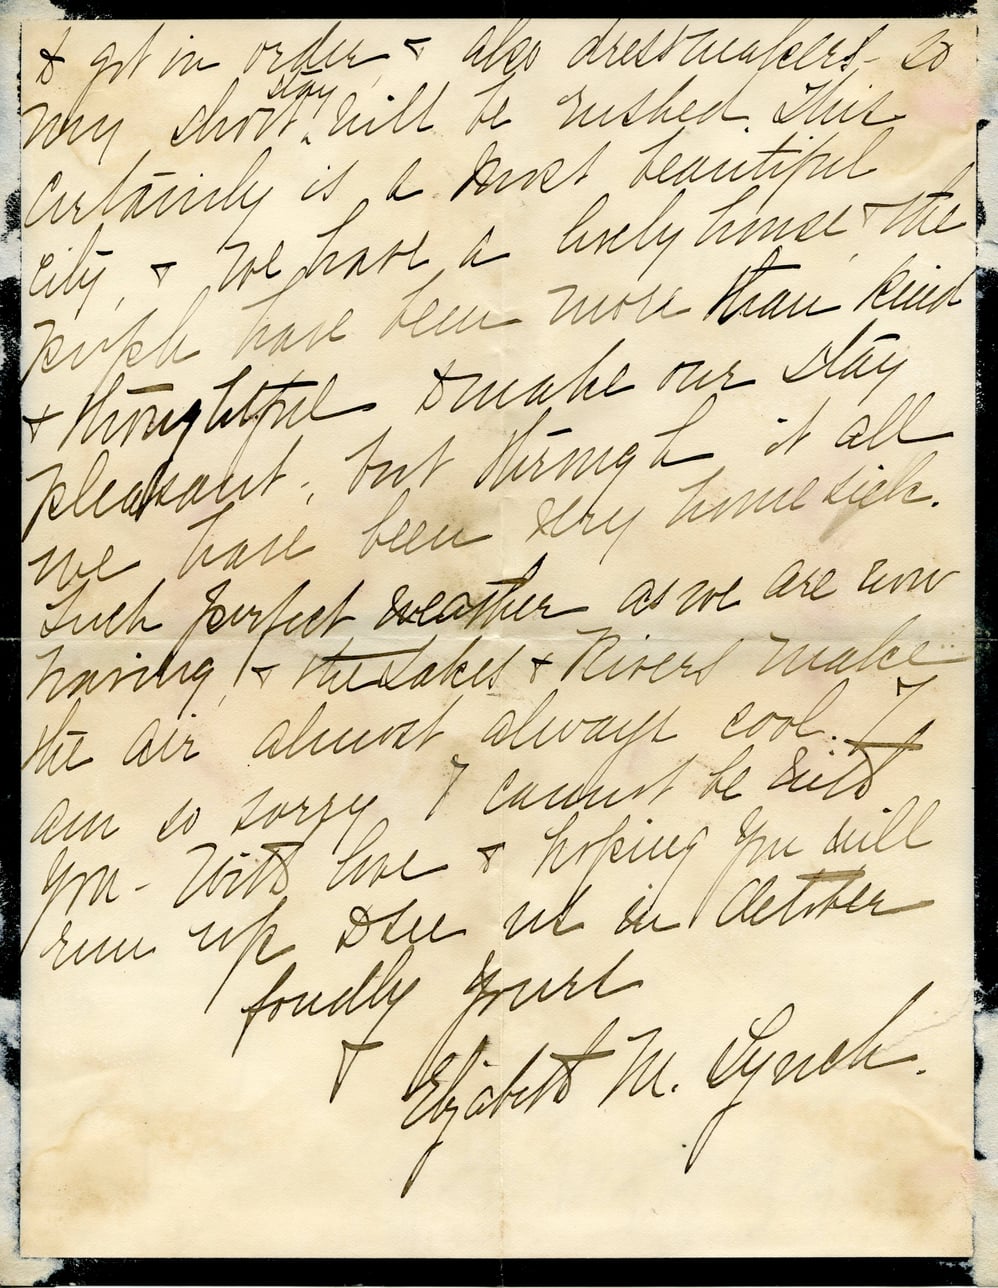 to get in order, & also dressmakers - so
my short stay will be rushed. This
Certainly is a most beautiful
City, & we have a lovely house, & the
people have been more than kind
& thoughtful to make our stay
pleasant, but through it all
we have been very homesick.
Such perfect weather as we are now
having, & the Lakes & Rivers make
the air almost always cool. I
am so sorry I cannot be with
you - With love & hoping you will
run up to see us in October
fondly yours
Elizabeth M. Lynch.